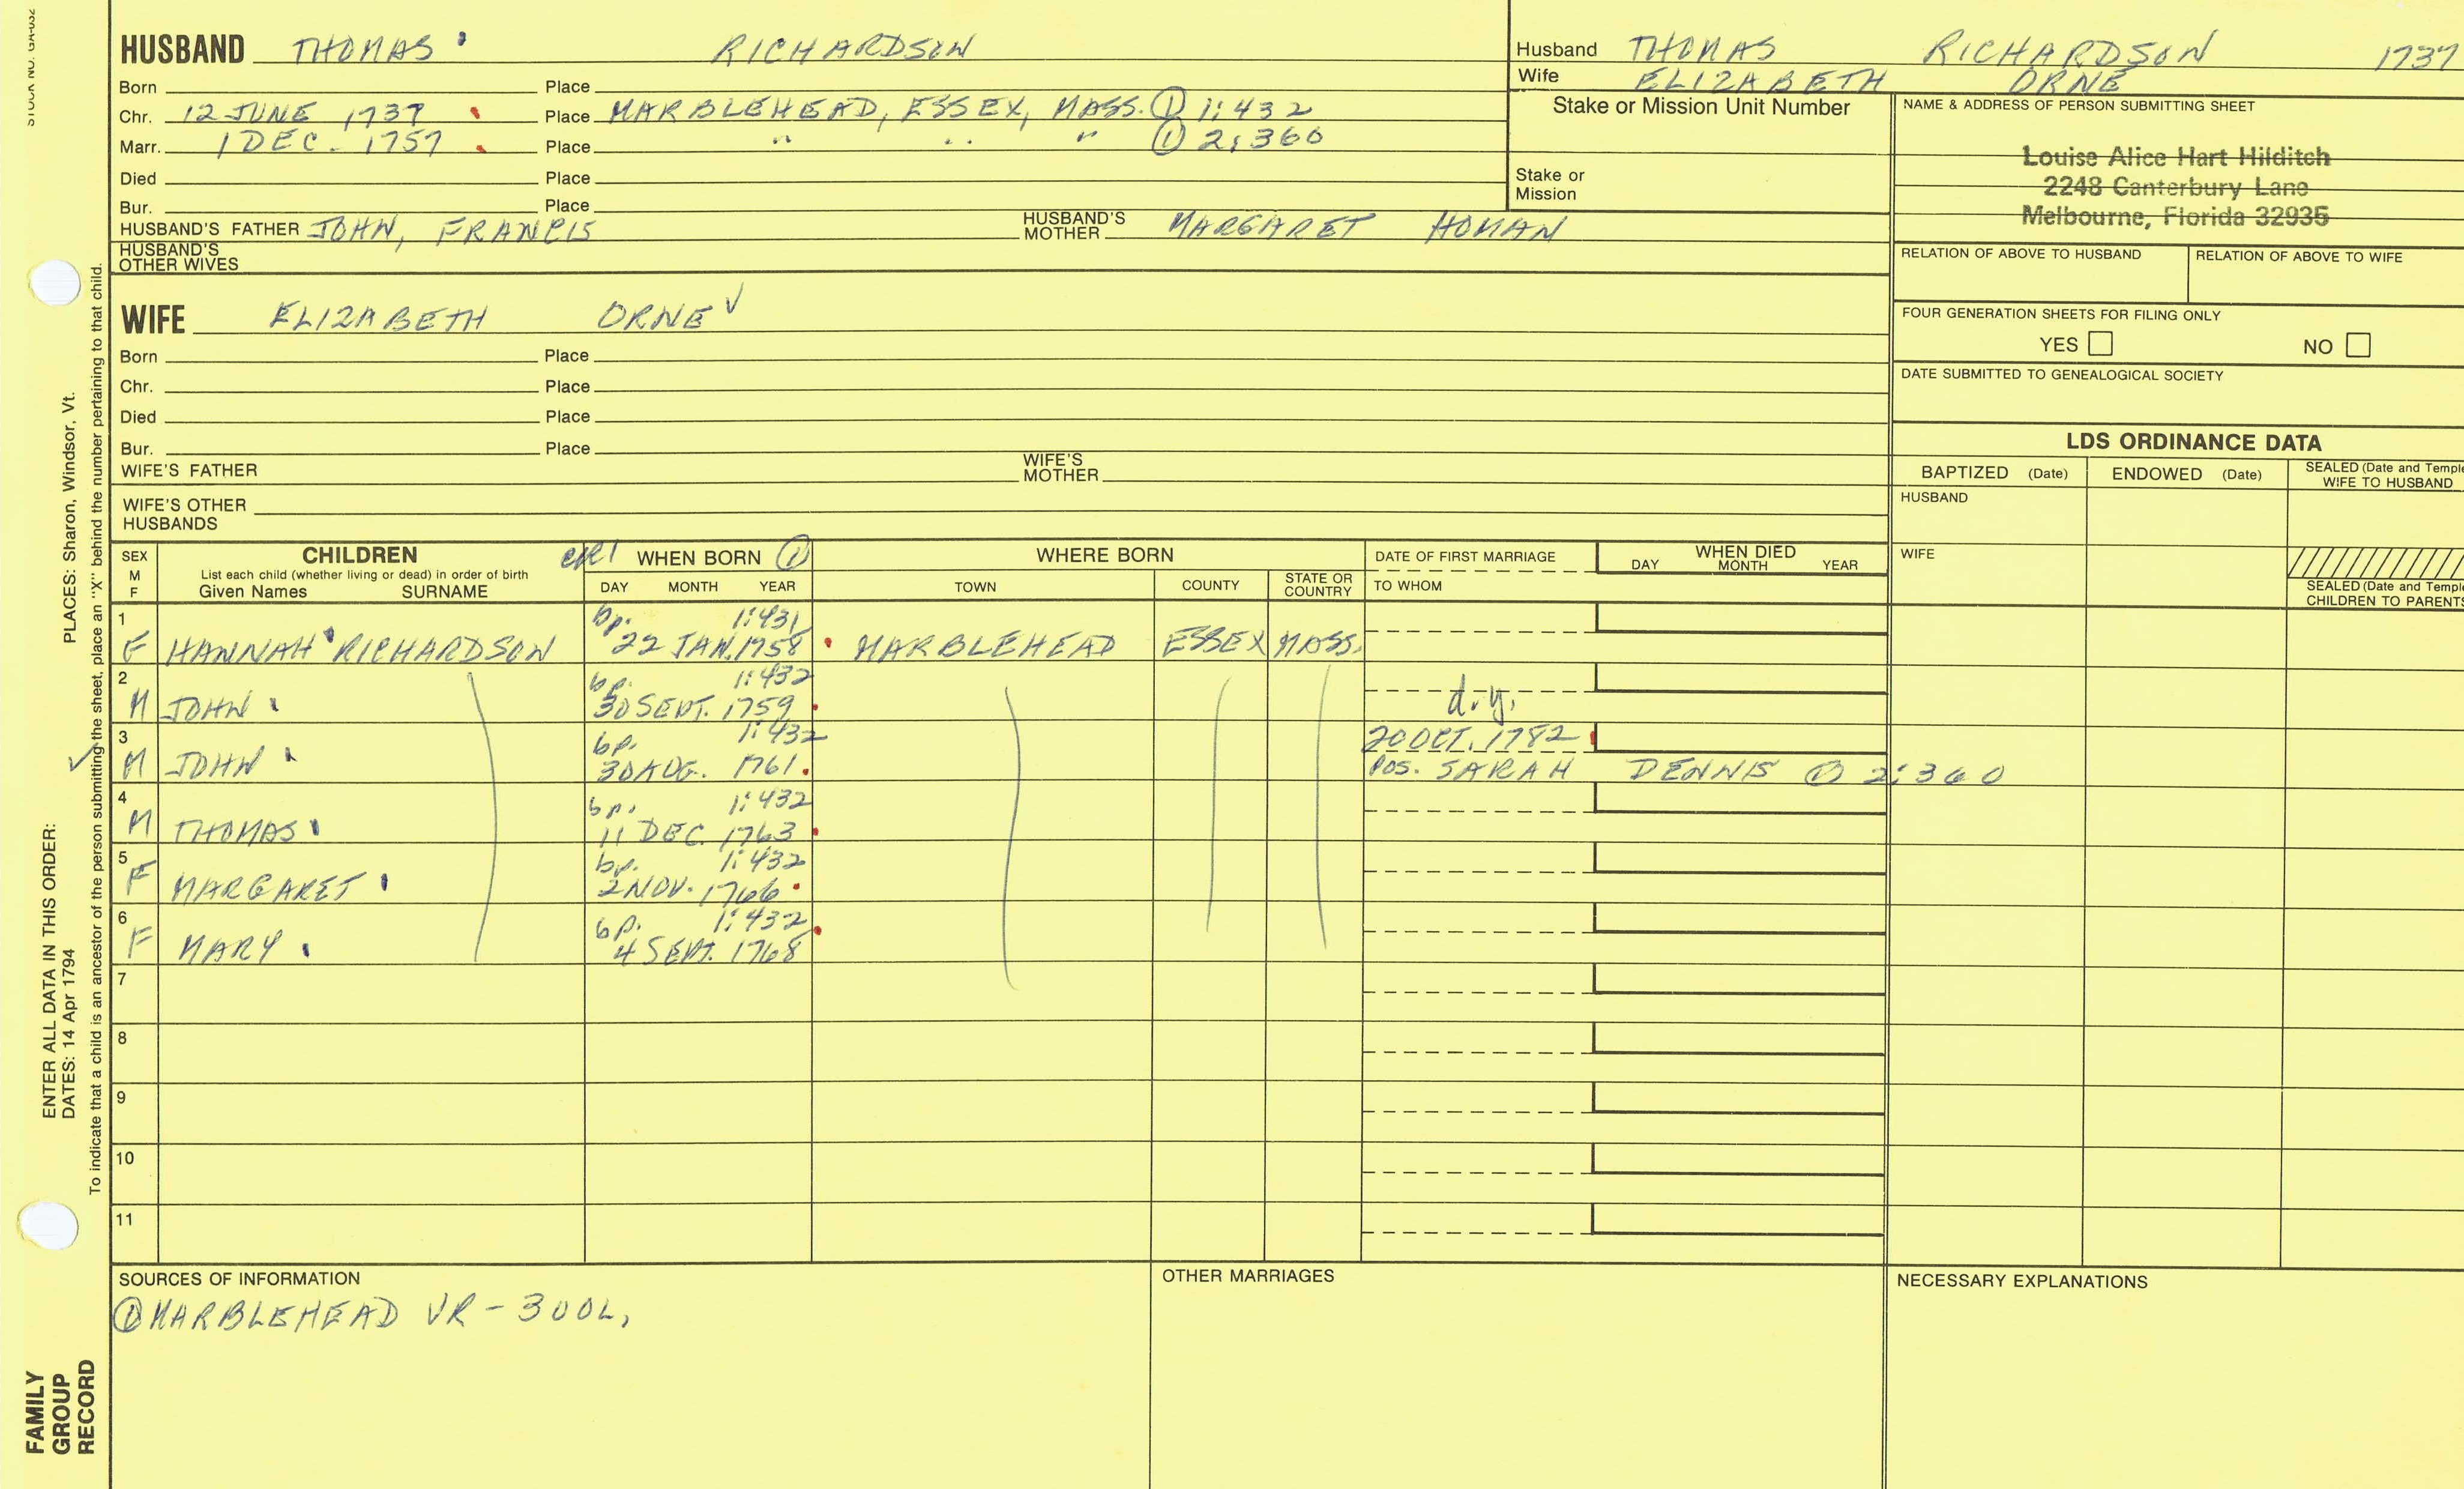 STOCK NO. GA-032
HUSBAND THOMAS RICHARDSON
Born Place
Chr. 12 JUNE 1737 Place MARBLEHEAD, ESSEX, MASS. ① 1:432
Marr. 1 DEC. 1757 Place " " " ① 2:360
Died Place
Bur. Place
HUSBAND'S FATHER JOHN, FRANCIS HUSBAND'S MOTHER MARGARET HOMAN
HUSBAND'S OTHER WIVES
Husband THOMAS RICHARDSON 1737
Wife ELIZABETH ORNE
Stake or Mission Unit Number
Stake or
Mission
NAME & ADDRESS OF PERSON SUBMITTING SHEET
Louise Alice Hart Hilditch
2248 Canterbury Lane
Melbourne, Florida 32935
RELATION OF ABOVE TO HUSBAND RELATION OF ABOVE TO WIFE
FOUR GENERATION SHEETS FOR FILING ONLY
YES NO
DATE SUBMITTED TO GENEALOGICAL SOCIETY
WIFE ELIZABETH ORNE √
Born Place
Chr. Place
Died Place
Bur. Place
WIFE'S FATHER WIFE'S MOTHER
WIFE'S OTHER
HUSBANDS
LDS ORDINANCE DATA
BAPTIZED (Date) ENDOWED (Date) SEALED (Date and Temple
WIFE TO HUSBAND
HUSBAND
WIFE
SEALED (Date and Temple
CHILDREN TO PARENTS
SEX
M
F
CHILDREN
List each child (whether living or dead) in order of birth
Given Names SURNAME
WHEN BORN ①
DAY MONTH YEAR
WHERE BORN
TOWN COUNTY STATE OR COUNTRY
DATE OF FIRST MARRIAGE
TO WHOM
WHEN DIED
DAY MONTH YEAR
1 bp. 1:431
F HANNAH RICHARDSON 22 JAN. 1758 MARBLEHEAD ESSEX MASS.
2 bp. 1:432
M JOHN 30 SEPT. 1759 d.y.
3 bp. 1:432 20 OCT. 1782
√ M JOHN 30 AUG. 1761 POS. SARAH DENNIS ① 2:360
4 bp. 1:432
M THOMAS 11 DEC. 1763
5 bp. 1:432
F MARGARET 2 NOV. 1766
6 bp. 1:432
F MARY 4 SEPT. 1768
7
8
9
10
11
SOURCES OF INFORMATION
① MARBLEHEAD VR - 300L,
OTHER MARRIAGES
NECESSARY EXPLANATIONS
ENTER ALL DATA IN THIS ORDER:
DATES: 14 Apr 1794 PLACES: Sharon, Windsor, Vt.
To indicate that a child is an ancestor of the person submitting the sheet, place an "X" behind the number pertaining to that child.
FAMILY
GROUP
RECORD